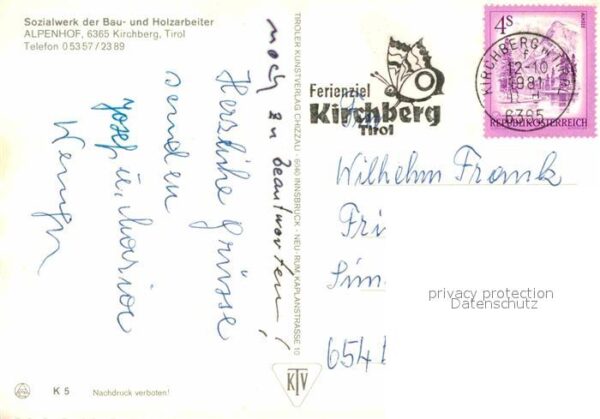 Sozialwerk der Bau- und Holzarbeiter
ALPENHOF, 6365 Kirchberg, Tirol
Telefon 0 53 57 / 23 89
Herzliche Grüsse
senden
Josef u. Maria
noch zu beantworten!
TIROLER KUNSTVERLAG CHIZZALI · 6040 INNSBRUCK · NEU-RUM, KAPLANSTRASSE 10
K 5
Nachdruck verboten!
KTV
Ferienziel
Kirchberg
Tirol
KIRCHBERG IN TIROL
12-10
1981
6365
4 S
REPUBLIK ÖSTERREICH
Wilhelm Frank
Fri
Sim
654
privacy protection
Datenschutz